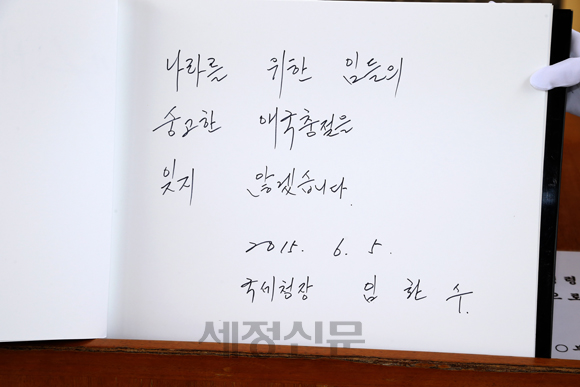 나라를 위한 임들의
숭고한 애국충절을
잊지 않겠습니다.
2015. 6. 5.
국세청장 임 환 수.
세정신문